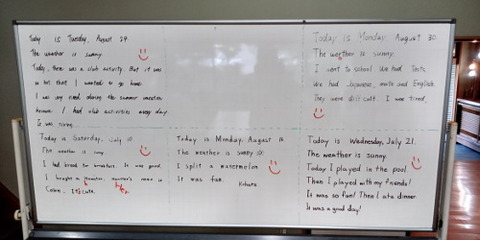 Today is Tuesday, August 24.
The weather is sunny.
Today, there was a club activity. But it was
so hot that I wanted to go home.
I was very tired during the summer vacation
because I had club activities every day.
It was tiring.
Today is Monday August 30.
The weather is sunny.
I went to school. We had Tests.
We had Japanese, math and English.
They were difficult. I was tired.
Today is Saturday, July 10
The weather is sunny
I had bread for breakfast. It was good.
I bought a hamster, hamster's name is
It's cute.
Today is Monday, August 16
The weather is sunny
I split a watermelon
It was fun.
Today is Wednesday, July 21.
The weather is sunny.
Today I played in the pool.
Then I played with my friends!
It was so fun! Then I ate dinner.
It was a good day!